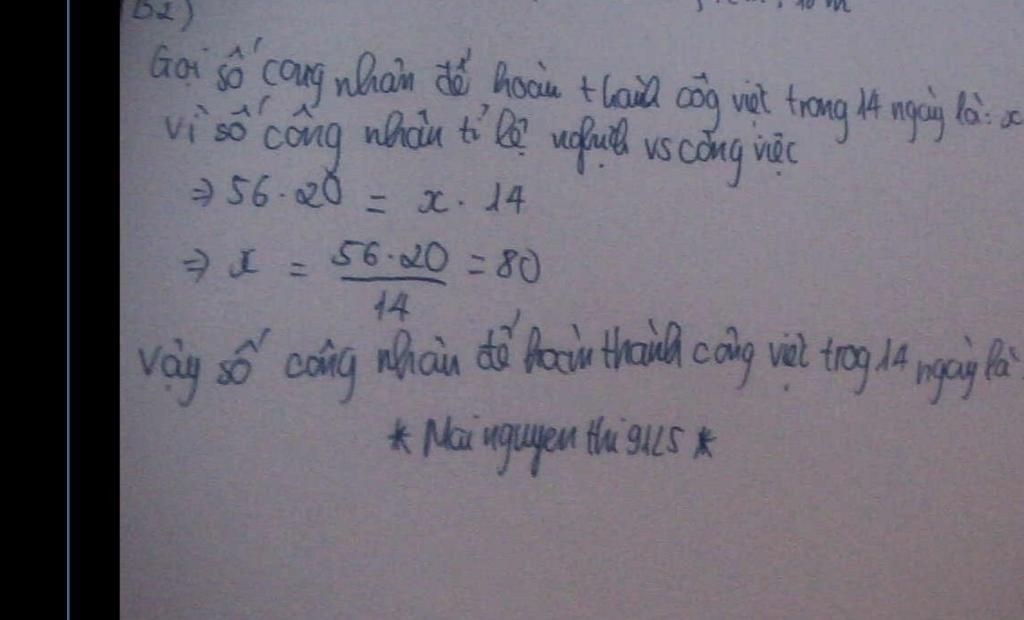 B2)
Gọi số công nhân để hoàn thành côg việc trong 14 ngày là: x
Vì số công nhân tỉ lệ nghịch vs công việc
⇒ 56 . 20 = x . 14
⇒ x = 56 . 20 / 14 = 80
Vậy số công nhân để hoàn thành công việc trog 14 ngày là
* Mai nguyen thi